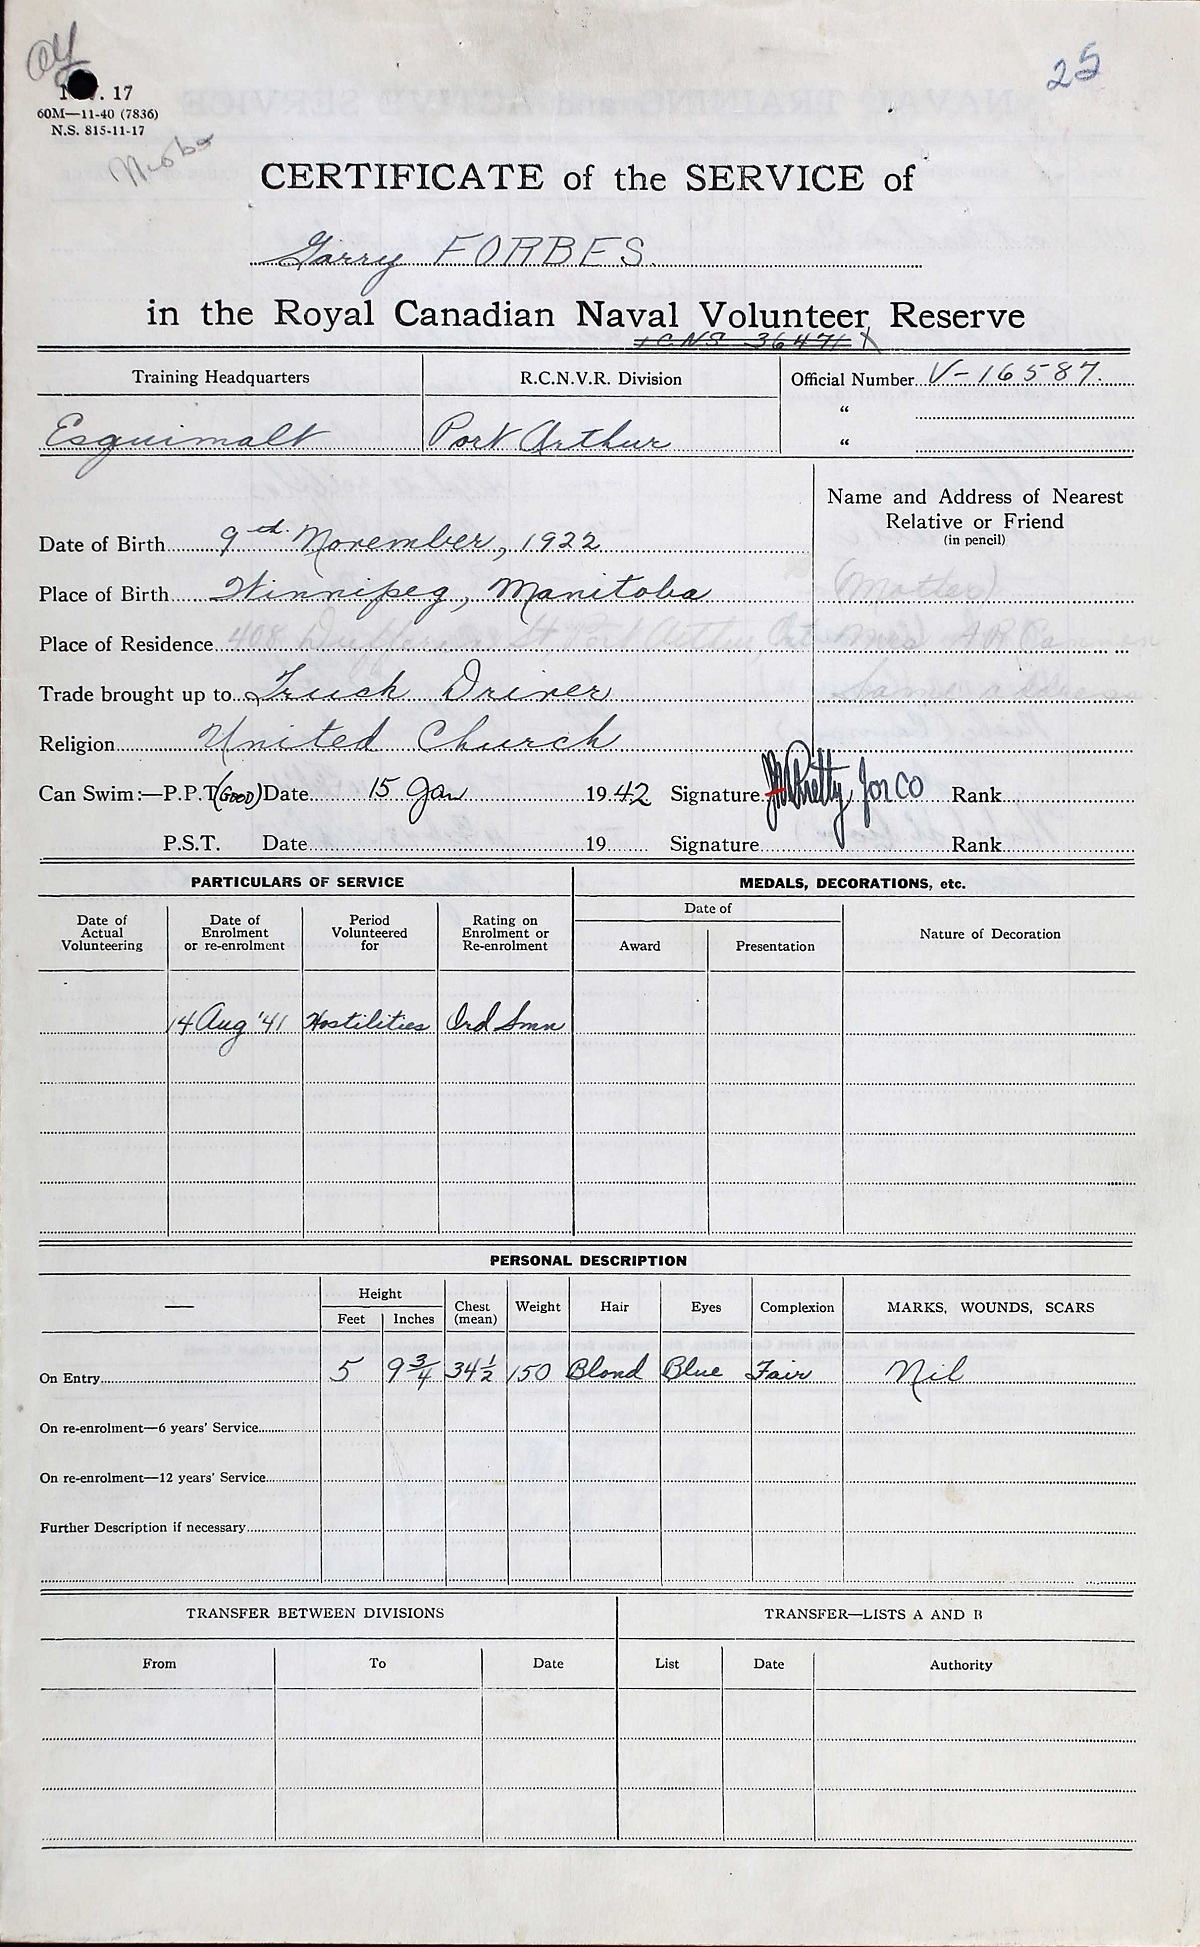 25
17
60M—11-40 (7836)
N.S. 815-11-17
CERTIFICATE of the SERVICE of
Garry FORBES
in the Royal Canadian Naval Volunteer Reserve
C.N.S. 36471 X
Training Headquarters R.C.N.V.R. Division Official Number V-16587.
“
Esquimalt Port Arthur “
Name and Address of Nearest
Relative or Friend
(in pencil)
Date of Birth 9th November, 1922
(Mother)
Place of Birth Winnipeg, Manitoba
Place of Residence 408 St Port Arthur, Ont Mrs A R Cameron
Trade brought up to Truck Driver Same address
Religion United Church
Can Swim:—P.P.T. (GOOD) Date 15 Jan 1942 Signature Pretty for CO Rank
P.S.T. Date 19 Signature Rank
PARTICULARS OF SERVICE MEDALS, DECORATIONS, etc.
Date of Actual Volunteering Date of Enrolment or re-enrolment Period Volunteered for Rating on Enrolment or Re-enrolment Date of Award Presentation Nature of Decoration
14 Aug '41 Hostilities Ord Smn
PERSONAL DESCRIPTION
— Height Feet Inches Chest (mean) Weight Hair Eyes Complexion MARKS, WOUNDS, SCARS
On Entry 5 9 3/4 34 1/2 150 Blond Blue Fair Nil
On re-enrolment—6 years' Service
On re-enrolment—12 years' Service
Further Description if necessary
TRANSFER BETWEEN DIVISIONS TRANSFER—LISTS A AND B
From To Date List Date Authority